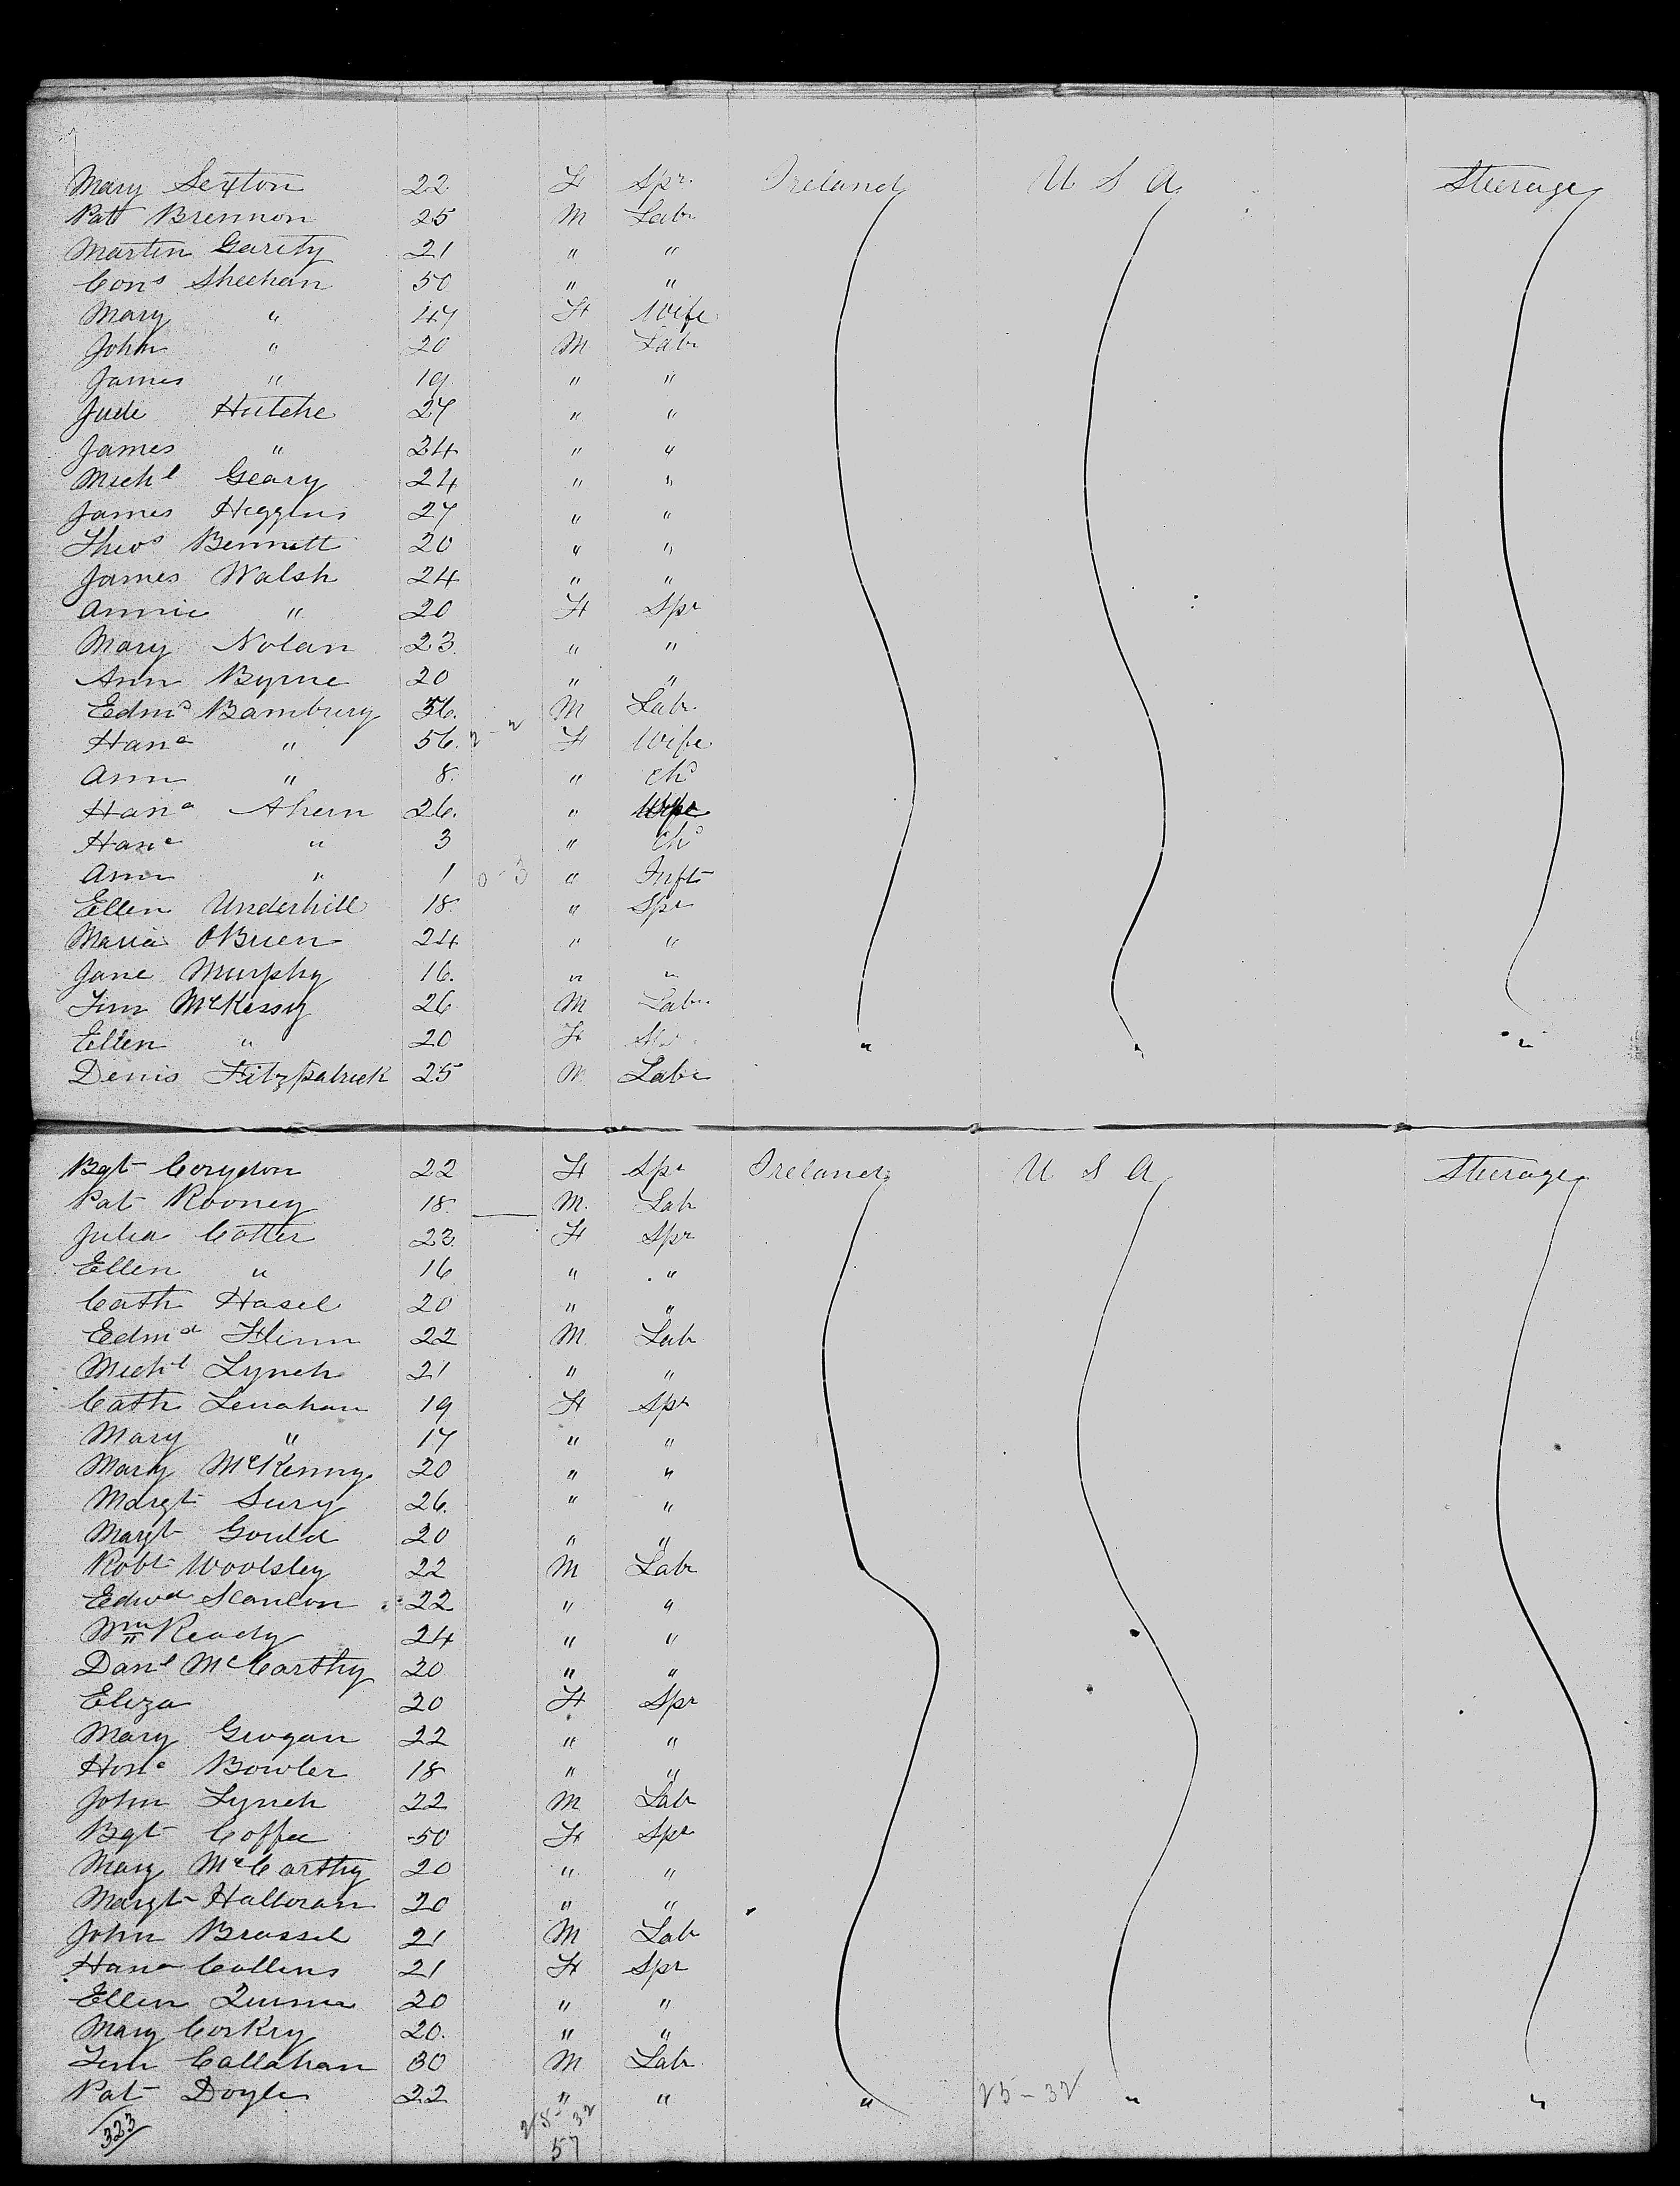 Mary Sexton 22 F Spr Ireland U S A Steerage
Patt Brennon 25 M Labr
Martin Garity 21 " "
Cons Sheehan 50 " "
Mary " 47 F Wife
John " 20 M Labr
James " 19 " "
Jude Hutche 27 " "
James " 24 " "
Michl Geary 24 " "
James Higgins 27 " "
Theos Bennett 20 " "
James Walsh 24 " "
Annie " 20 F Spr
Mary Nolan 23 " "
Ann Byrne 20 " "
Edmd Bambury 56 M Labr
Hana " 56 F Wife
Ann " 8 " Chd
Hana Ahern 26 " Wife
Hana " 3 " Chd
Ann " 1 0-3 " Inft
Ellen Underhill 18 " Spr
Maria OBrien 24 " "
Jane Murphy 16 " "
Tim McKessy 26 M Labr
Ellen " 20 F " " "
Denis Fitzpatrick 25 M Labr
Bgt Corydon 22 F Spr Ireland U S A Steerage
Pat Rooney 18 M Lab
Julia Cotter 23 F Spr
Ellen " 16 " "
Cath Hasel 20 " "
Edmd Flinn 22 M Lab
Michl Lynch 21 " "
Cath Lenahan 19 F Spr
Mary " 17 " "
Mary McKenny 20 " "
Margt Sury 26 " "
Margt Gould 20 " "
Robt Woolsley 22 M Labr
Edwd Scanlon 22 " "
Wm Ready 24 " "
Danl McCarthy 20 " "
Eliza 20 F Spr
Mary Grogan 22 " "
Hona Bowler 18 " "
John Lynch 22 M Lab
Bgt Coffee 50 F Spr
Mary McCarthy 20 " "
Margt Halloran 20 " "
John Brassel 21 M Lab
Hana Collins 21 F Spr
Ellen Quinn 20 " "
Mary Corkry 20 " "
Tim Callahan 30 M Lab
Pat Doyle 22 " " " 25-32 " "
323 25-32
57